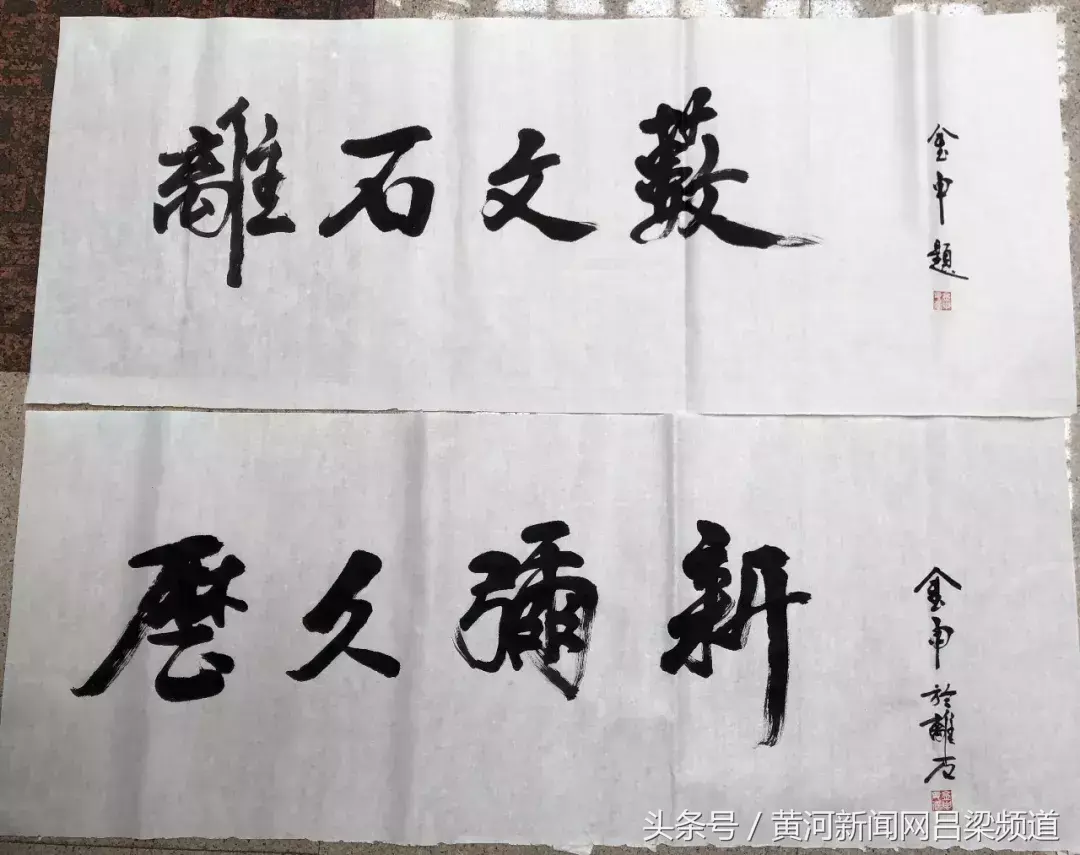 離石文薮
金申題
歷久彌新
金申於離石
头条号 / 黄河新闻网吕梁频道